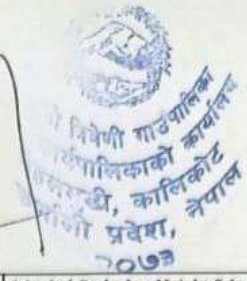 त्रिवेणी गाउँपालिका
गाउँपालिकाको कार्यालय
कालिकोट
कर्णाली प्रदेश, नेपाल
२०७३